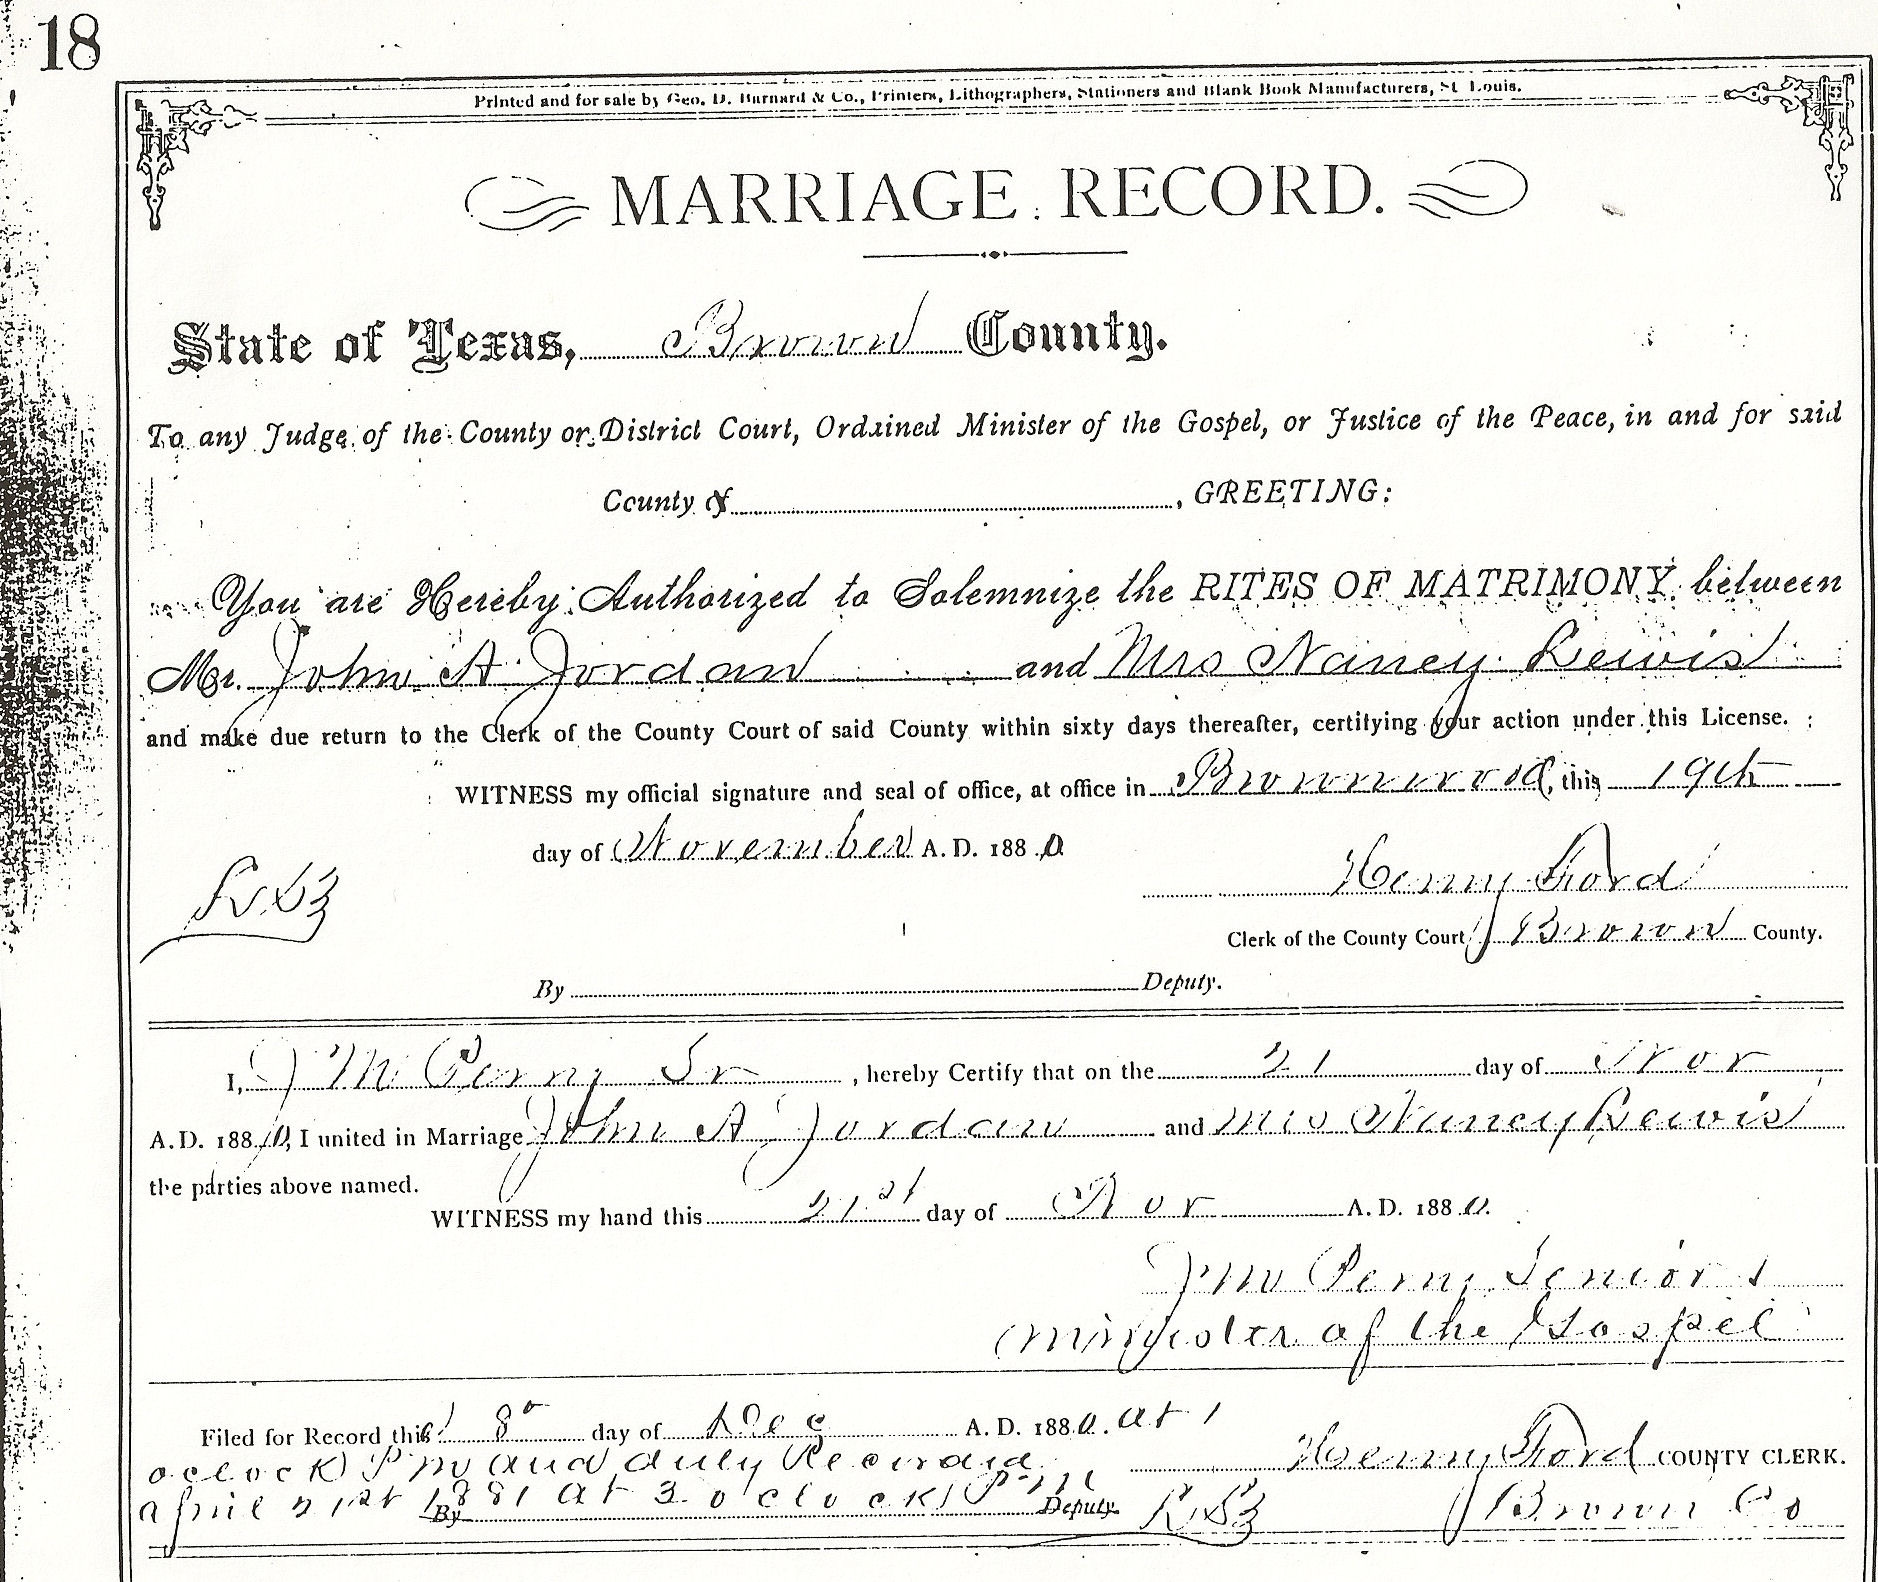 18
Printed and for sale by Geo. D. Barnard & Co., Printers, Lithographers, Stationers and Blank Book Manufacturers, St. Louis.
MARRIAGE RECORD.
State of Texas, Brown County.
To any Judge of the County or District Court, Ordained Minister of the Gospel, or Justice of the Peace, in and for said
County of , GREETING:
You are Hereby Authorized to Solemnize the RITES OF MATRIMONY between
Mr. John A Jordan and Mrs Nancy Lewis
and make due return to the Clerk of the County Court of said County within sixty days thereafter, certifying your action under this License.
WITNESS my official signature and seal of office, at office in Brownwood, this 19th
day of November A. D. 1880
Henry Ford
Clerk of the County Court Brown County.
By Deputy.
I, J M Perry Sr , hereby Certify that on the 21 day of Nov
A. D. 1880, I united in Marriage John A Jordan and Mrs Nancy Lewis
the parties above named.
WITNESS my hand this 21st day of Nov A. D. 1880.
J M Perry Senior
minister of the Gospel
Filed for Record this 8 day of Dec A. D. 1880. at 1
oclock P m and duly Record
Henry Ford COUNTY CLERK.
april 21st 1881 at 3 o clock P m
By Deputy.
Brown Co